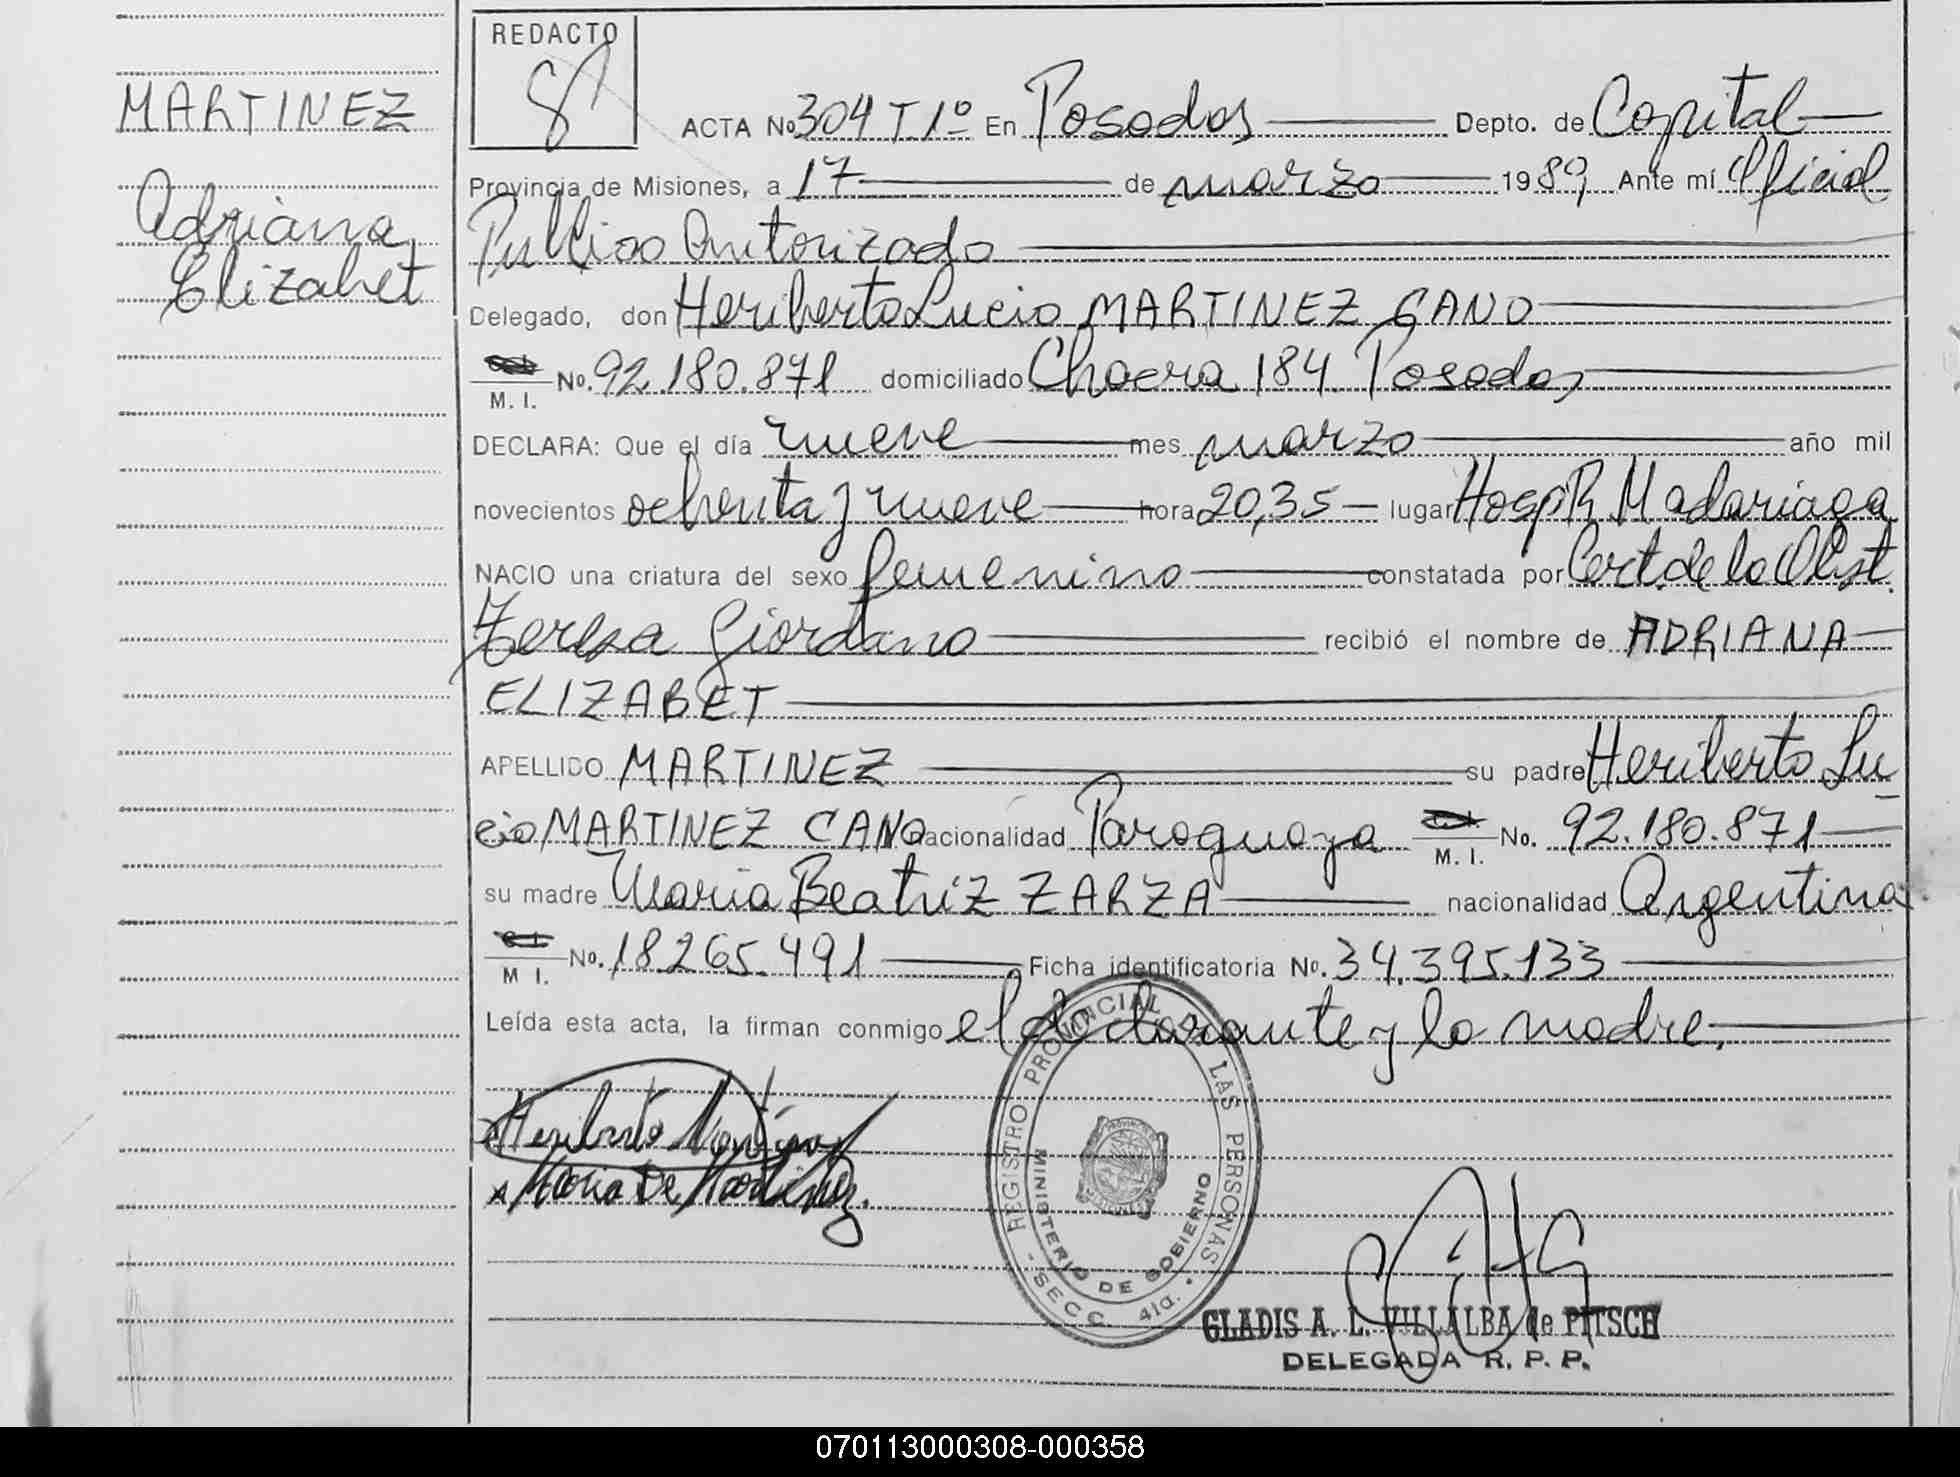 REDACTO
MARTINEZ
Adriana
Elizabet
ACTA No 304 T 1º En Posadas Depto. de Capital
Provincia de Misiones, a 17 de marzo 1989 Ante mí Oficial
Publico Autorizado
Delegado, don Heriberto Lucio MARTINEZ CANO
M. I. No. 92.180.871 domiciliado Chacra 184 Posadas
DECLARA: Que el día nueve mes marzo año mil
novecientos ochenta y nueve hora 20,35 lugar Hosp R Madariaga
NACIO una criatura del sexo femenino constatada por Cert. de la Obst.
Teresa Giordano recibió el nombre de ADRIANA
ELIZABET
APELLIDO MARTINEZ su padre Heriberto Lu
cio MARTINEZ CANO nacionalidad Paraguaya M. I. No. 92.180.871
su madre Maria Beatriz ZARZA nacionalidad Argentina
M I. No. 18.265.491 Ficha identificatoria No. 34.395.133
Leída esta acta, la firman conmigo el declarante y la madre.
Heriberto Martinez
Maria De Martinez.
REGISTRO PROVINCIAL DE LAS PERSONAS
MINISTERIO DE GOBIERNO
SECC. 4ta.
GLADIS A. L. VILLALBA de PITSCH
DELEGADA R. P. P.
070113000308-000358